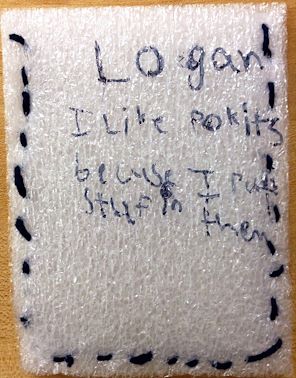 Logan
I Like Pokits
becuse I put
stuf in them